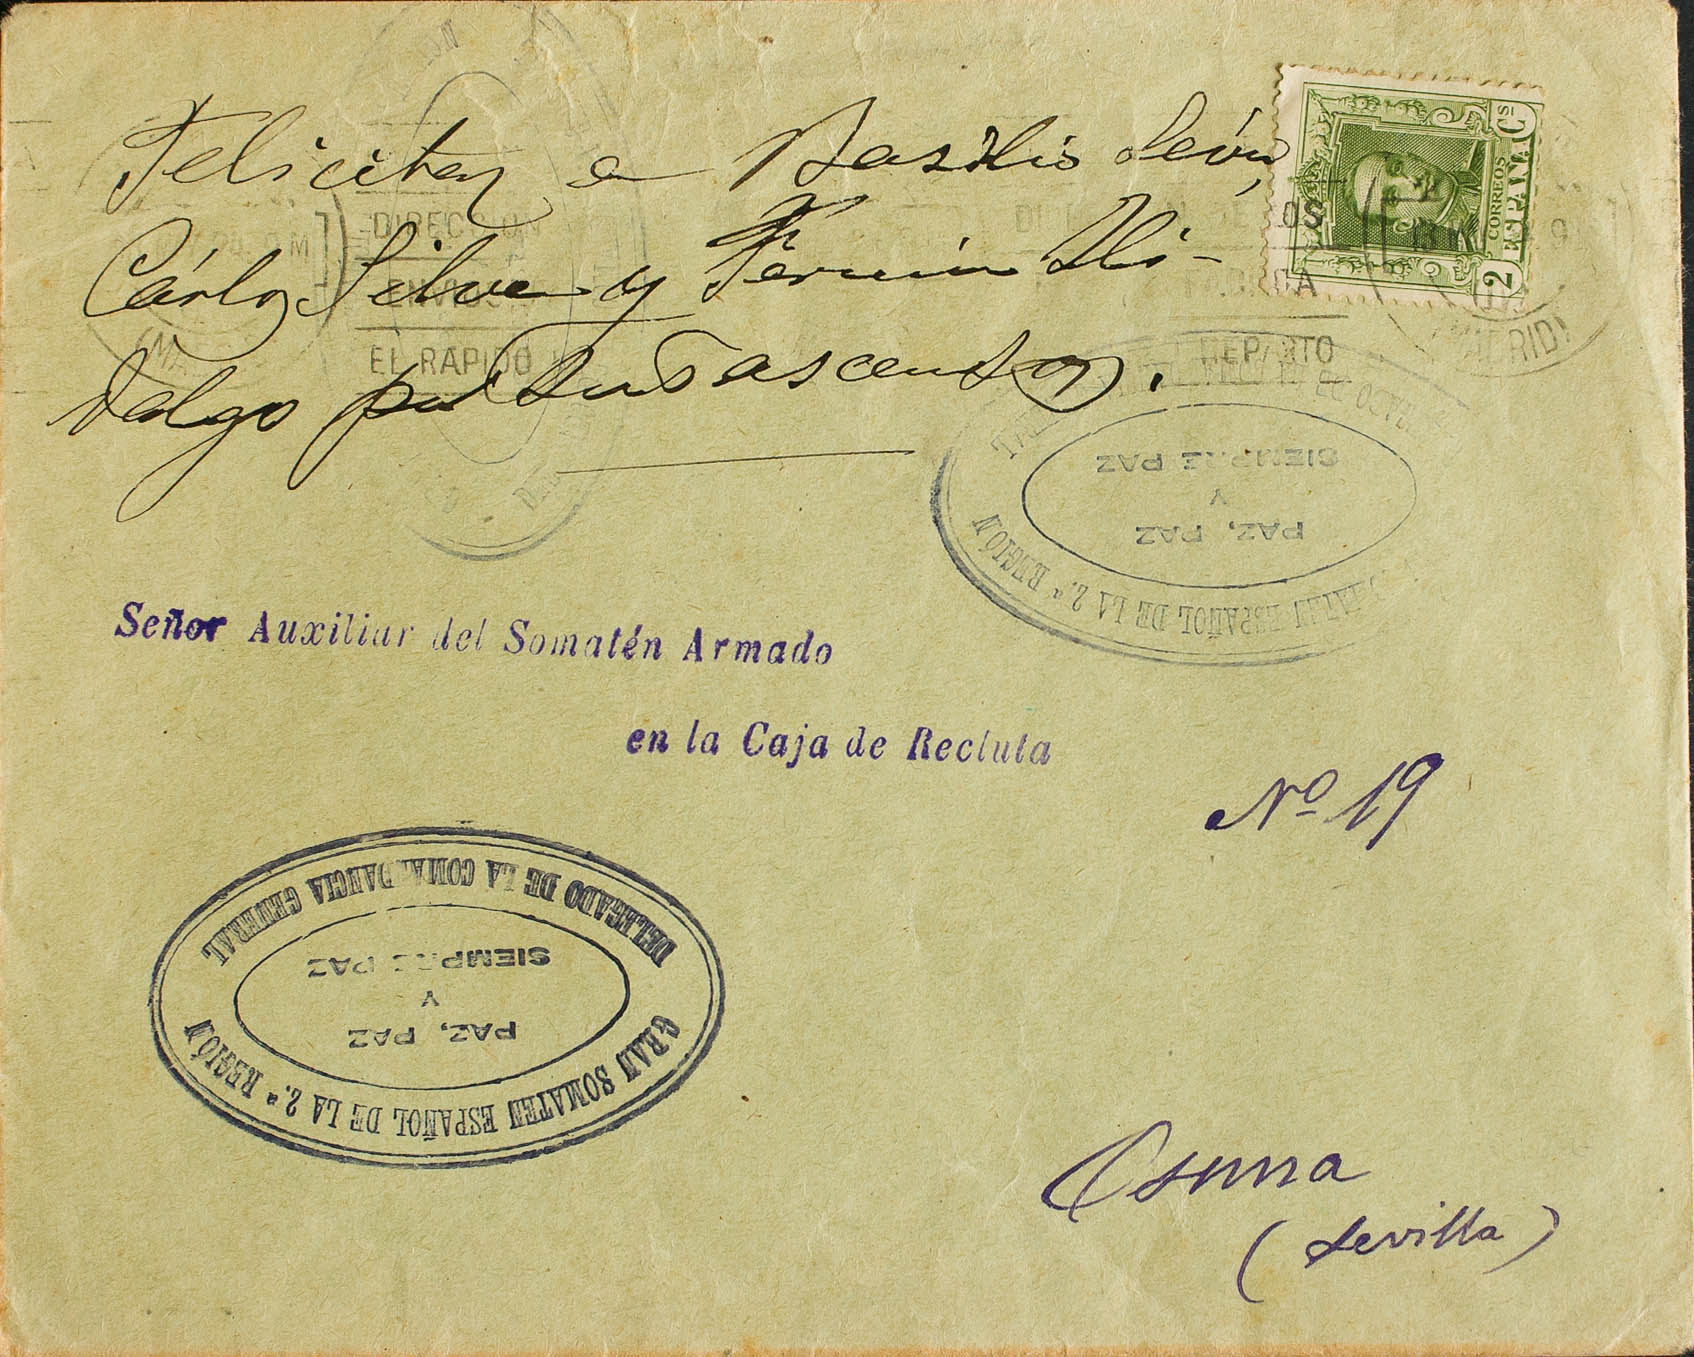 Felicitar a Basilio León,
Cárlos Silva y Fermin Hi-
dalgo por su ascenso.
2 Cs
CORREOS
ESPAÑA
DIRECCION
EL RAPIDO
REPARTO
MADRID
SIEMPRE PAZ
Y
PAZ, PAZ
ESPAÑOL DE LA 2.ª REGIÓN
Señor Auxiliar del Somatén Armado
en la Caja de Recluta
Nº 19
DELEGADO DE LA COMANDANCIA GENERAL
SIEMPRE PAZ
Y
PAZ, PAZ
GRAN SOMATEN ESPAÑOL DE LA 2.ª REGIÓN
Osuna
(Sevilla)